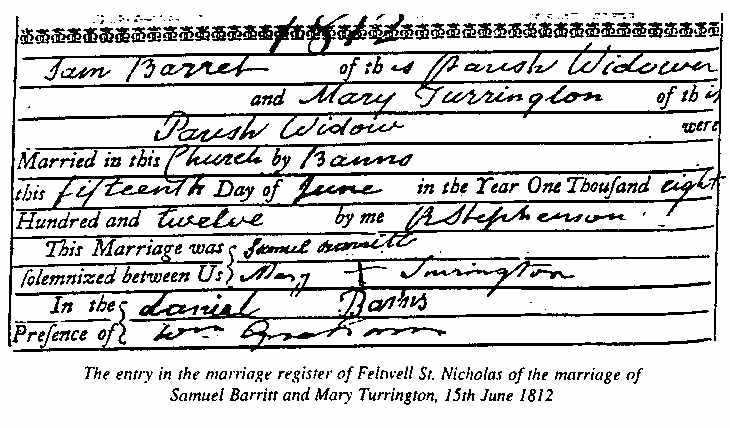 1812
Sam Barret of this Parish Widower
and Mary Turrington of this
Parish Widow were
Married in this Church by Banns
this fifteenth Day of June in the Year One Thouſand eight
Hundred and twelve by me R Stephenson
This Marriage was Samuel
ſolemnized between Us Mary + Turrington
In the daniel
Preſence of Wm
The entry in the marriage register of Feltwell St. Nicholas of the marriage of
Samuel Barritt and Mary Turrington, 15th June 1812